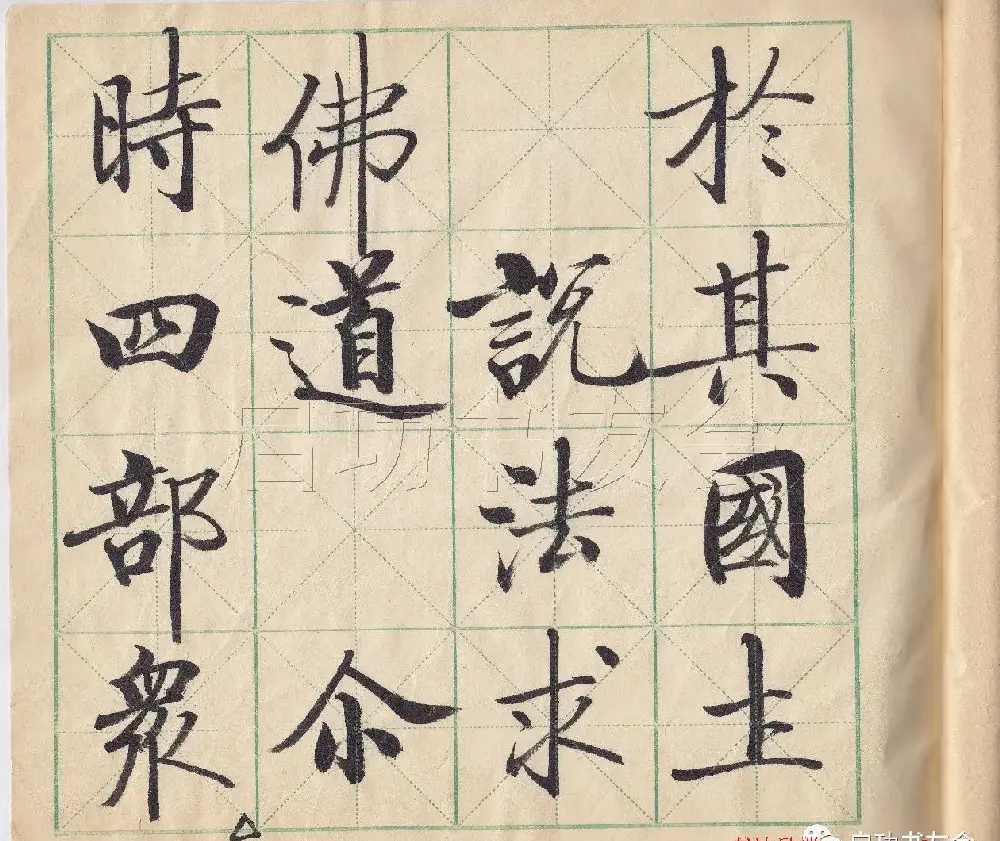 於其國土
說法求
佛道尒
時四部眾
启功书友会
启功书友会